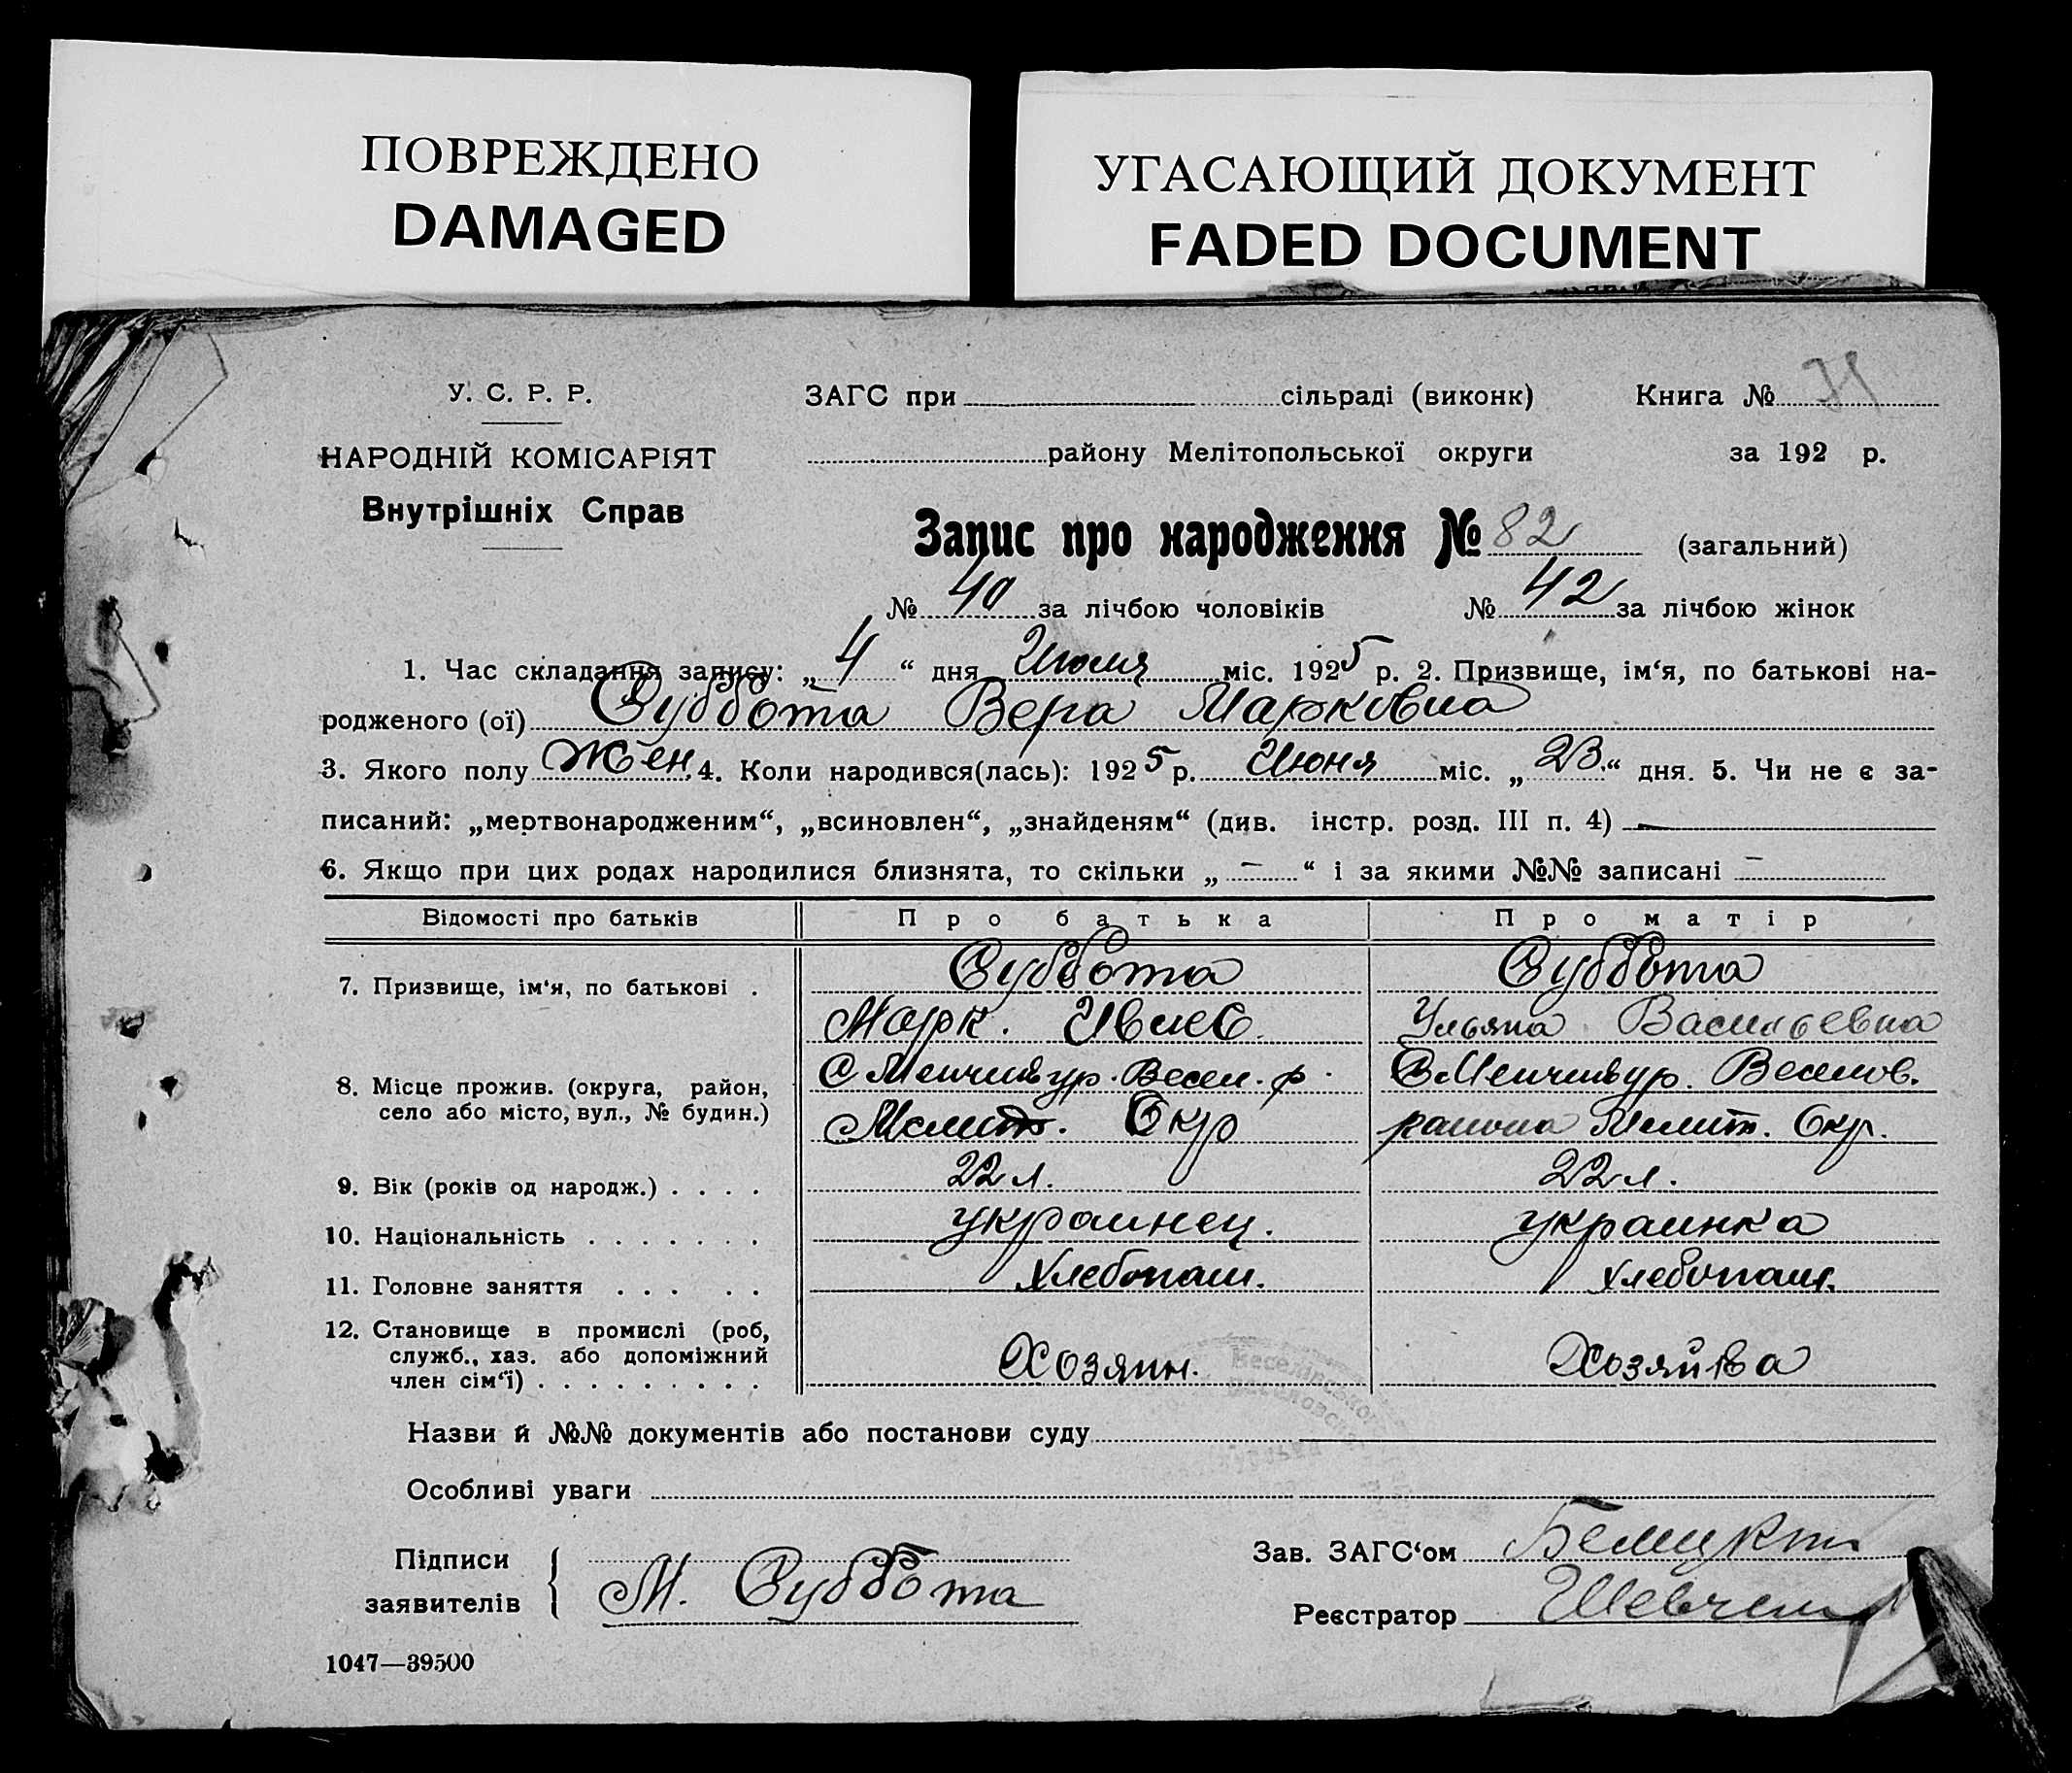 ПОВРЕЖДЕНО
DAMAGED
УГАСАЮЩИЙ ДОКУМЕНТ
FADED DOCUMENT
У. С. Р. Р.
НАРОДНІЙ КОМІСАРІЯТ
Внутрішніх Справ
ЗАГС при сільраді (виконк)
Книга №
району Мелітопольської округи
за 192 р.
Запис про народження № 82 (загальний)
№ 40 за лічбою чоловіків № 42 за лічбою жінок
1. Час складання запису: „ 4 “ дня Июля міс. 1925 р. 2. Призвище, ім‘я, по батькові на-
родженого (ої) Суббота Вера Марковна
3. Якого полу Жен. 4. Коли народився(лась): 1925 р. Июня міс. „ 23 “ дня. 5. Чи не є за-
писаний: „мертвонародженим“, „всиновлен“, „знайденям“ (див. інстр. розд. III п. 4) —
6. Якщо при цих родах народилися близнята, то скільки „ — “ і за якими №№ записані —
Відомості про батьків Про батька Про матір
7. Призвище, ім‘я, по батькові . Суббота Суббота
Марк. Ульяна Васильевна
8. Місце прожив. (округа, район, село або місто, вул., № будин.)
С Менчикур. Весел. р. С Менчикур. Веселов.
Мелит. Окр района Мелит. Окр.
9. Вік (років од народж.) . . . . 22 л. 22 л.
10. Національність . . . . . . . украинец. украинка
11. Головне заняття . . . . . Хлебопаш. Хлебопаш.
12. Становище в промислі (роб, служб., хаз. або допоміжний член сім‘ї) . . . . . . . . . Хозяин. Хозяйка
Назви й №№ документів або постанови суду
Особливі уваги
Підписи заявителів
М. Суббота
Зав. ЗАГС‘ом
Реєстратор
1047—39500